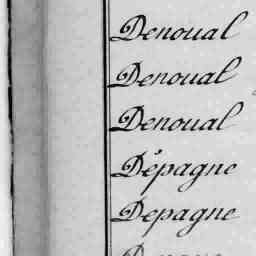 Denoual
Denoual
Denoual
Dépagne
Depagne